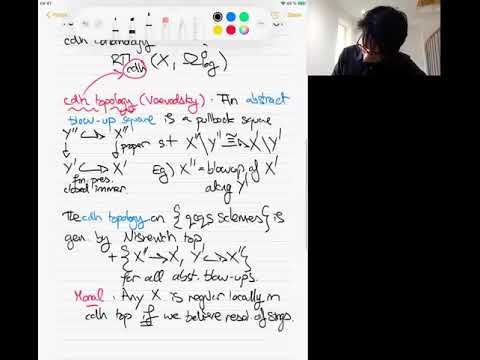 cdh cohomology
RΓcdh (X, Ω^i_log)
cdh topology (Voevodsky). An abstract
blow-up square is a pullback square
Y'' ↪ X''
↓ ↓ proper s.t X''\Y'' ≅ X'\Y'
Y' ↪ X' Eg) X'' = blowup of X'
fin. pres. along Y'
closed immer.
The cdh topology on {qcqs schemes} is
gen. by Nisnevich top
+ {X'' → X', Y' ↪ X'}
for all abst. blow-ups.
Moral. Any X is regular locally in
cdh top if we believe resol. of sings.